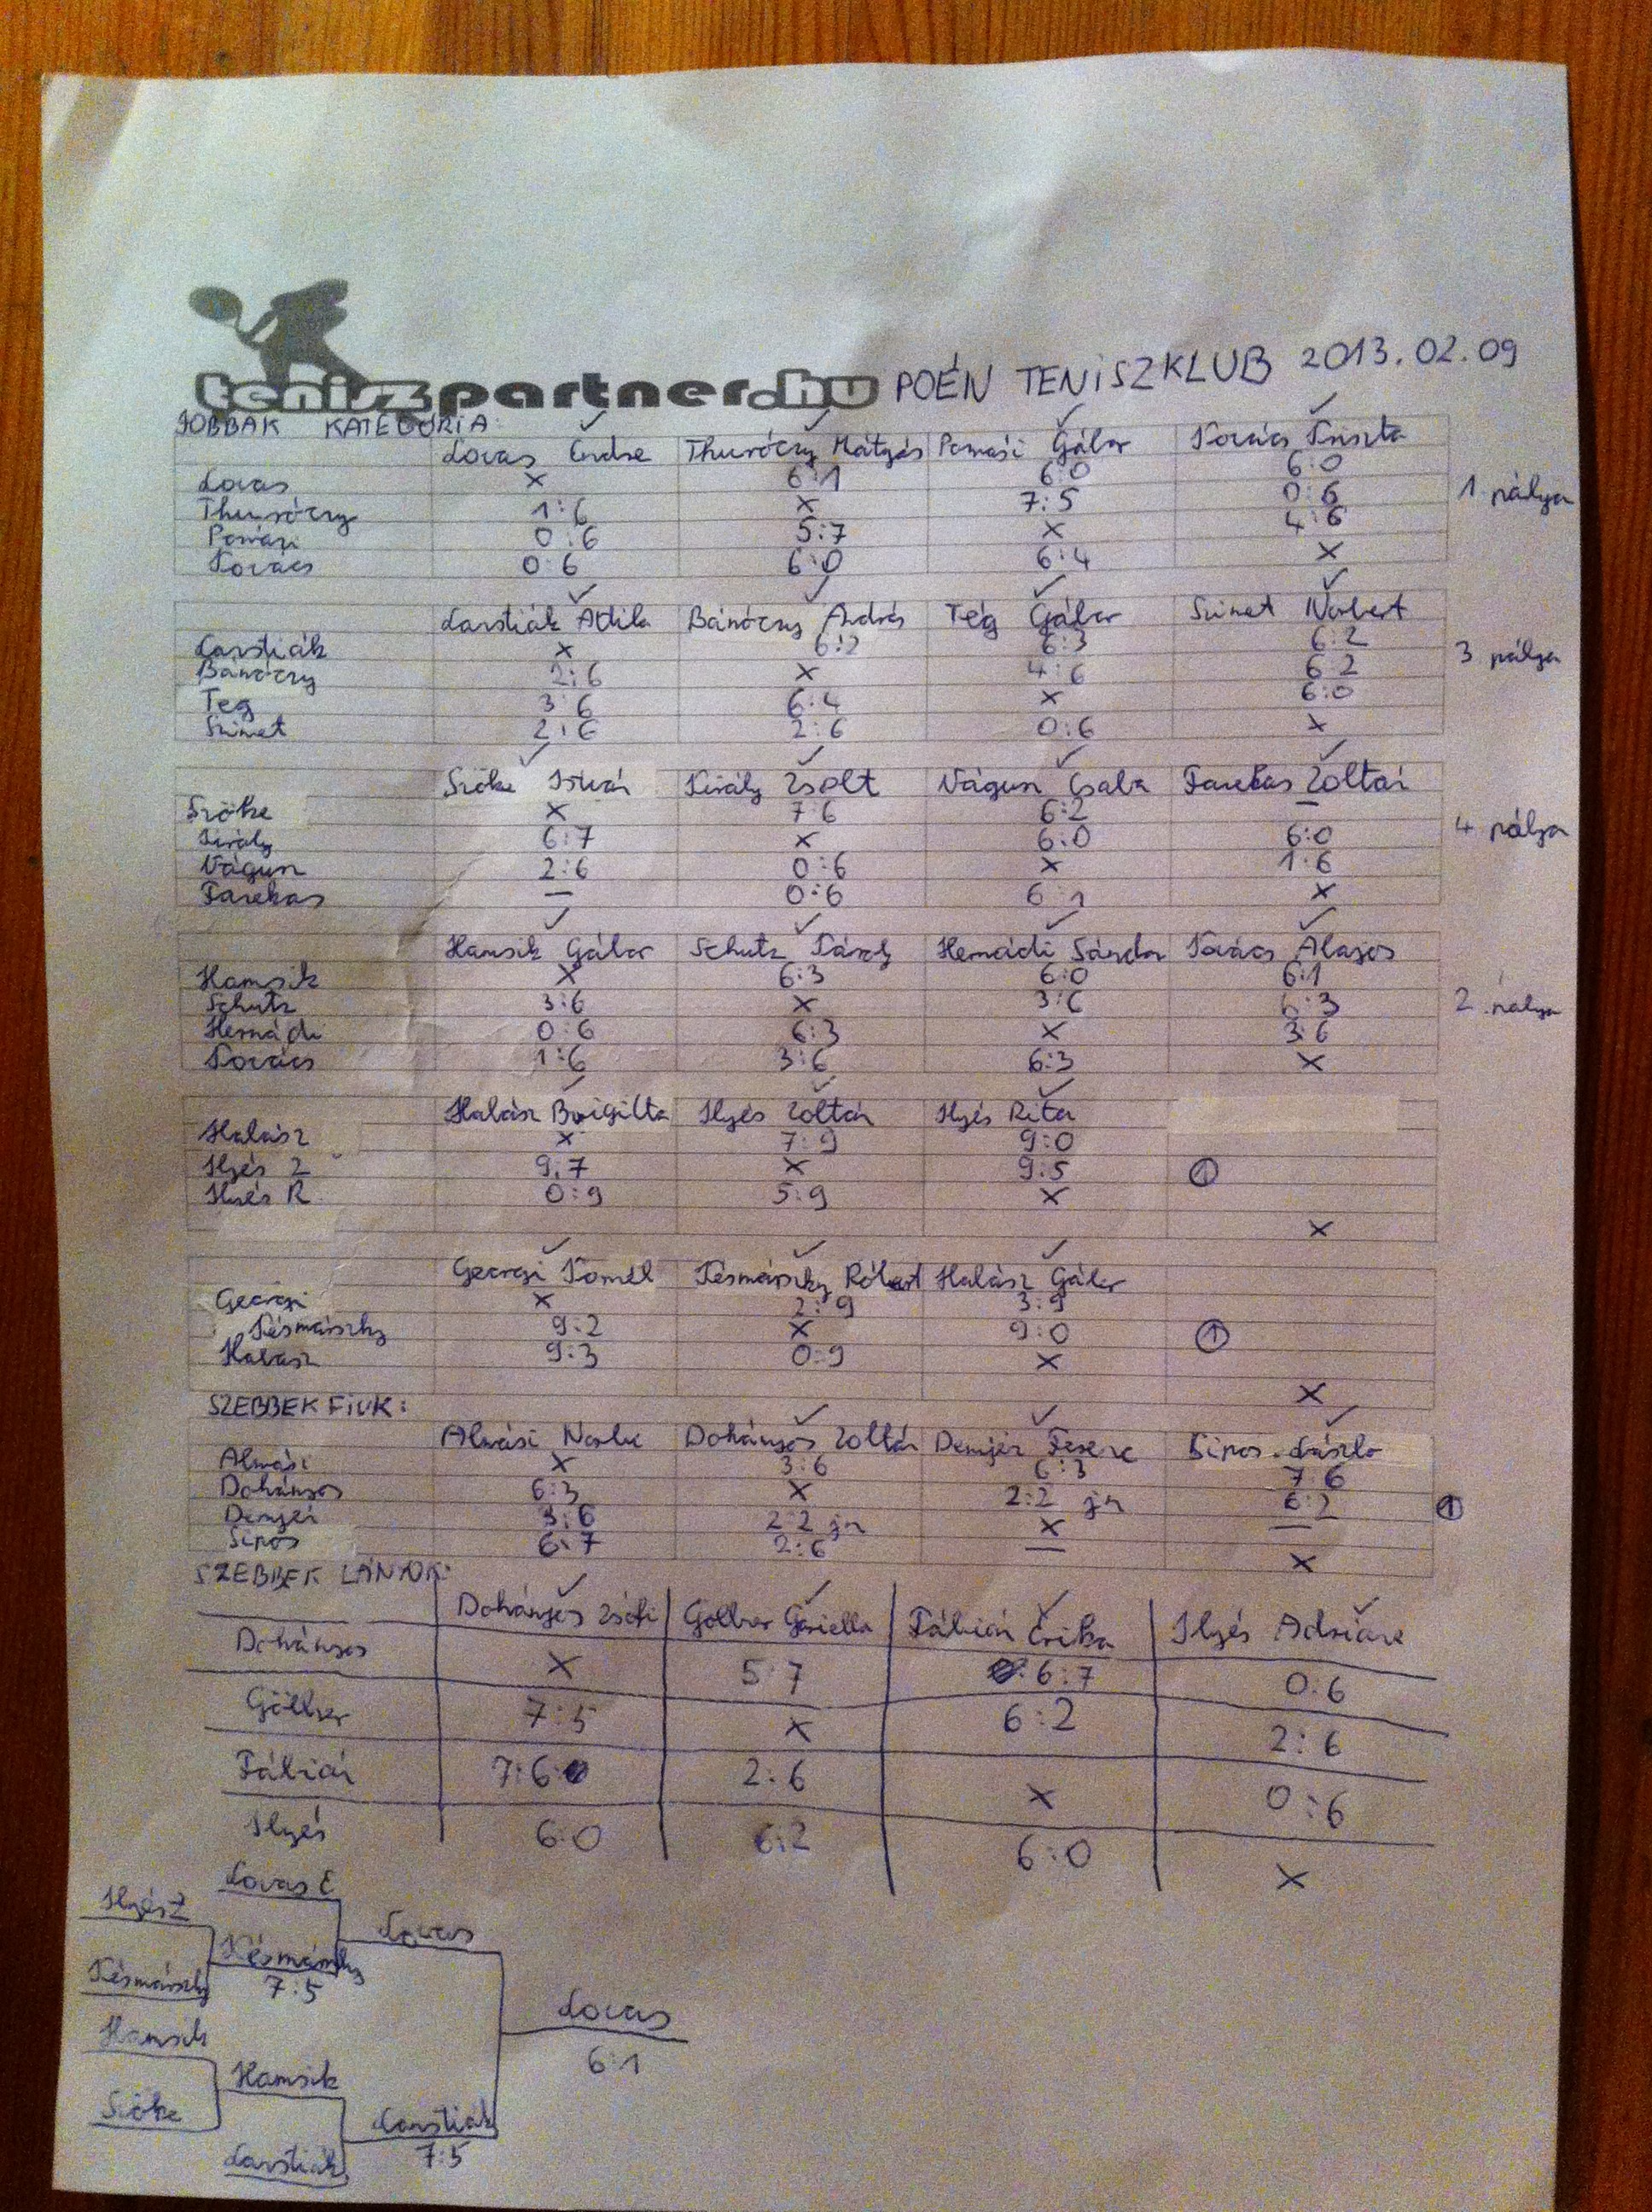 teniszpartner.hu POÉN TENiSZKLUB 2013.02.09
JOBBAK KATEGÓRIA:
Lovas Endre Thuróczy Mátyás Pomázi Gábor Kovács Kriszta
Lovas x 6:1 6:0 6:0 1 pálya
Thuróczy 1:6 x 7:5 0:6
Pomázi 0:6 5:7 x 4:6
Kovács 0:6 6:0 6:4 x
Lavstiák Attila Bánóczy András Tég Gábor Szinet Norbert
Lavstiák x 6:2 6:3 6:2 3 pálya
Bánóczy 2:6 x 4:6 6:2
Teg 3:6 6:4 x 6:0
Szinet 2:6 2:6 0:6 x
Szőke István Király Zsolt Vágun Csaba Farekas Zoltán
Szőke x 7:6 6:2 —
Király 6:7 x 6:0 6:0 4 pálya
Vágun 2:6 0:6 x 1:6
Farekas — 0:6 6:1 x
Hamsik Gábor Schutz Károly Hernádi Sándor Kovács Alajos
Hamsik x 6:3 6:0 6:1
Schutz 3:6 x 3:6 6:3 2 pálya
Hernádi 0:6 6:3 x 3:6
Kovács 1:6 3:6 6:3 x
Halász Brigitta Ilyés Zoltán Ilyés Rita
Halász x 7:9 9:0
Ilyés Z 9:7 x 9:5 ①
Ilyés R 0:9 5:9 x
x
Georgi Kornél Késmárszky Róbert Halász Gábor
Georgi x 2:9 3:9
Késmárszky 9:2 x 9:0 ①
Halász 9:3 0:9 x
x
SZEBBEK FiUK:
Almási Norbi Dohányos Zoltán Demjén Ferenc Sipos László
Almási x 3:6 6:3 7:6
Dohányos 6:3 x 2:2 jn 6:2 ①
Demjén 3:6 2:2 jn x —
Sipos 6:7 2:6 — x
SZEBBEK LÁNYOK:
Dohányos Zsófi Göllner Gabriella Fábián Erika Ilyés Adriane
Dohányos x 5:7 6:7 0:6
Göllner 7:5 x 6:2 2:6
Fábián 7:6 2:6 x 0:6
Ilyés 6:0 6:2 6:0 x
Lovas E
Ilyés Z
Lovas
Késmárszky
Késmárszky 7:5
Hamsik
Lovas
6:1
Hamsik
Szőke
Lavstiák
7:5
Lavstiák